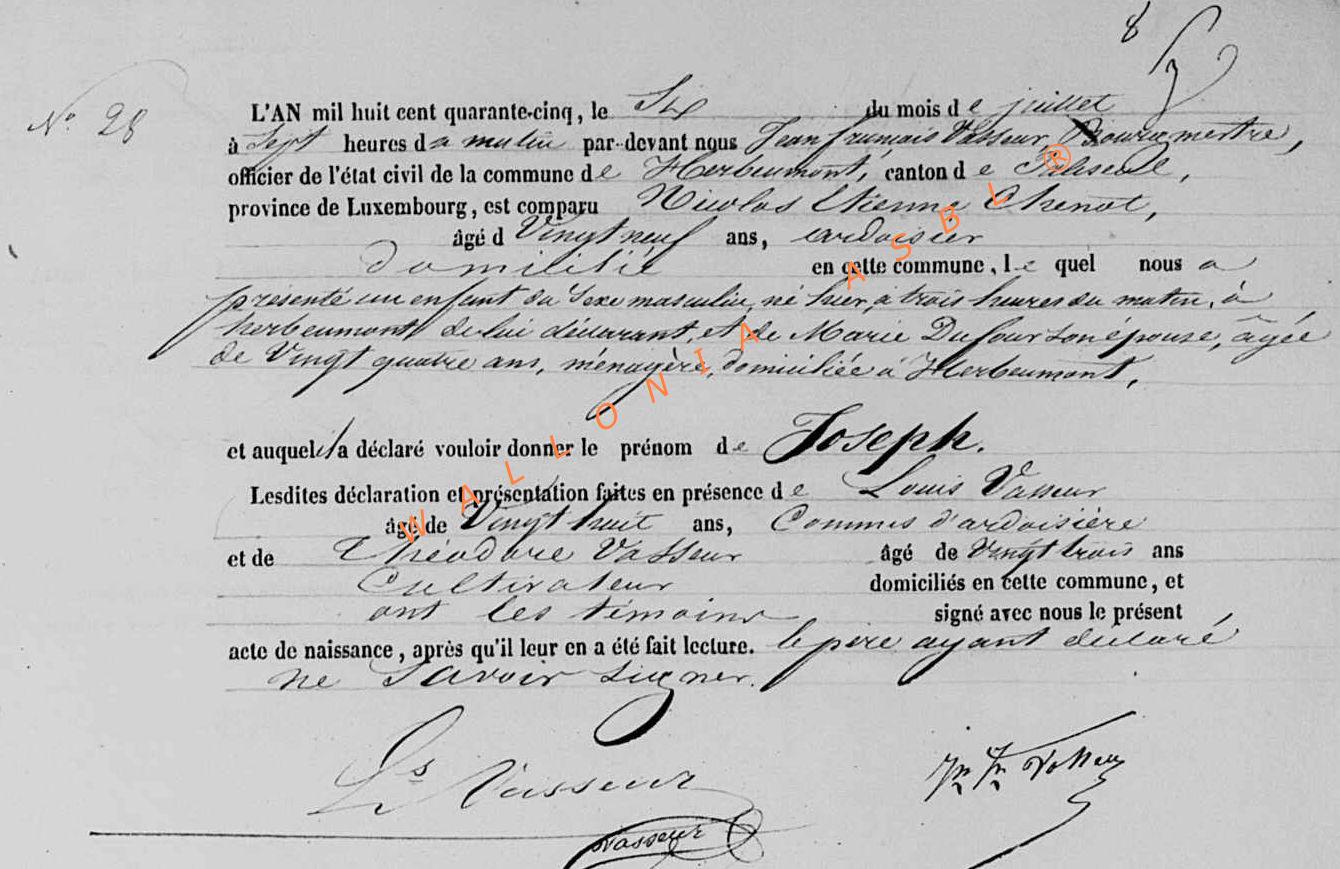 8
N° 28
L'AN mil huit cent quarante-cinq, le Six du mois de juillet
à Sept heures du matin par-devant nous Jean françois Vasseur, Bourgmestre,
officier de l'état civil de la commune de Herbeumont, canton de Paliseul,
province de Luxembourg, est comparu Nicolas Etienne Chenot,
âgé d Vingt neuf ans, ardoisier
domicilié en cette commune, le quel nous a
présenté un enfant du Sexe masculin, né hier, à trois heures du matin, à
herbeumont de lui déclarant, et de Marie Dufour son épouse, âgée
de Vingt quatre ans, ménagère, domiciliée a Herbeumont,
et auquel il a déclaré vouloir donner le prénom de Joseph.
Lesdites déclaration et présentation faites en présence de Louis Vasseur
âgé de Vingt huit ans, Commis d'ardoisière
et de Théodore Vasseur âgé de Vingt trois ans
Cultivateur domiciliés en cette commune, et
ont les témoins signé avec nous le présent
acte de naissance, après qu'il leur en a été fait lecture. le père ayant déclaré
ne Savoir Signer.
Ls Vasseur
Jn Fn Vasseur
Vasseur
WALLONIA ASBL ®